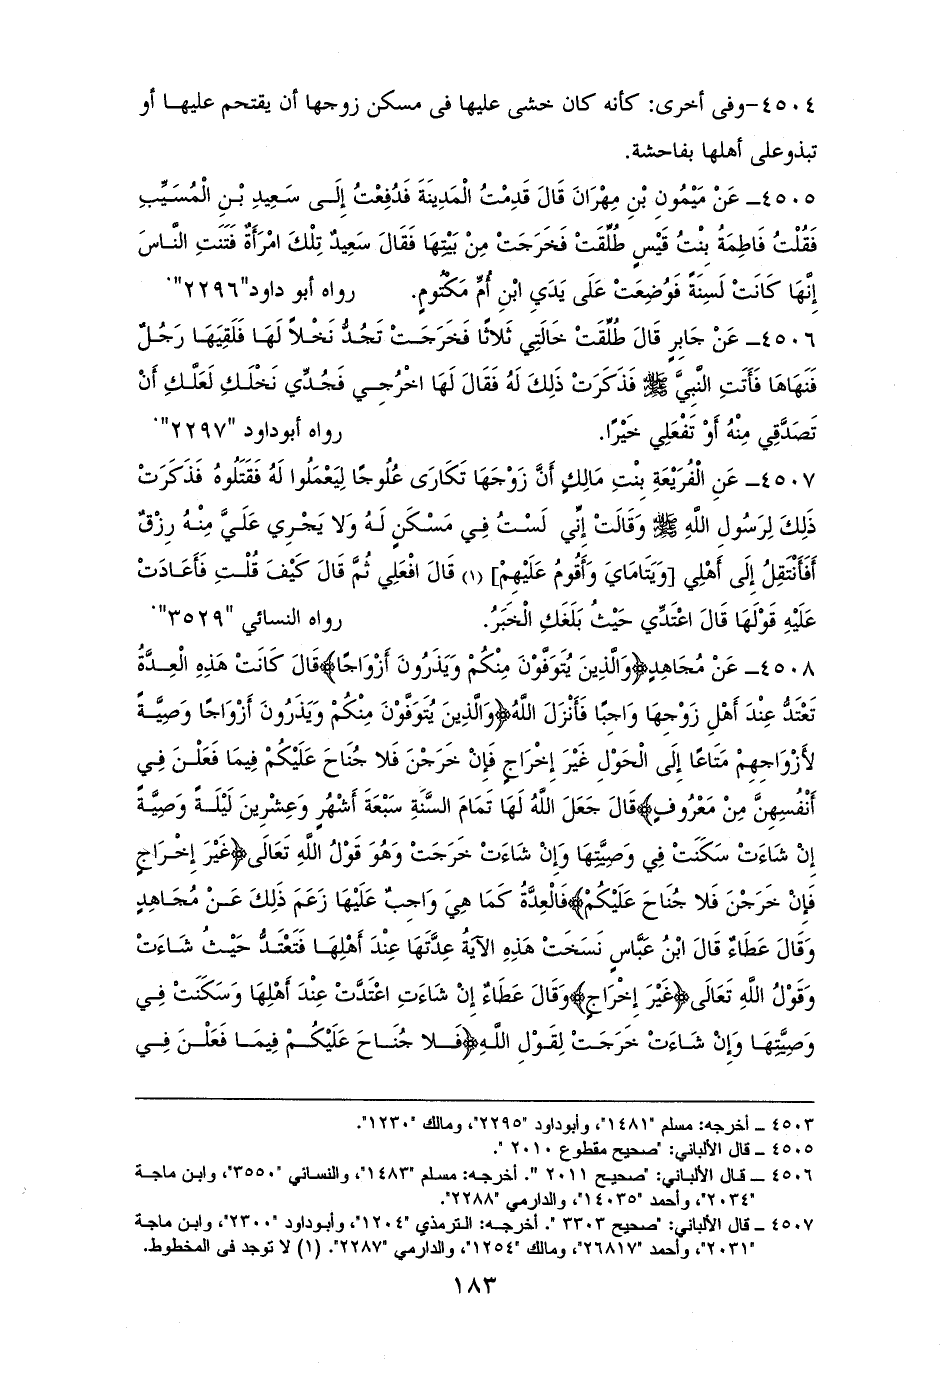 ٤٥٠٤-وفى أخرى: كأنه كان خشى عليها فى مسكن زوجها أن يقتحم عليها أو
تبذوعلى أهلها بفاحشة.
٤٥٠٥ـ عَنْ مَيْمُونِ بْنِ مِهْرَانَ قَالَ قَدِمْتُ الْمَدِينَةَ فَدُفِعْتُ إِلَى سَعِيدِ بْنِ الْمُسَيِّبِ
فَقُلْتُ فَاطِمَةُ بِنْتُ قَيْسٍ طُلِّقَتْ فَخَرَجَتْ مِنْ بَيْتِهَا فَقَالَ سَعِيدٌ تِلْكَ امْرَأَةٌ فَتَنَتِ النَّاسَ
إِنَّهَا كَانَتْ لَسِنَةً فَوُضِعَتْ عَلَى يَدَيِ ابْنِ أُمِّ مَكْتُومٍ. رواه أبو داود"٢٢٩٦".
٤٥٠٦ـ عَنْ جَابِرٍ قَالَ طُلِّقَتْ خَالَتِي ثَلاثًا فَخَرَجَتْ تَجُدُّ نَخْلاً لَهَا فَلَقِيَهَا رَجُلٌ
فَنَهَاهَا فَأَتَتِ النَّبِيَّ ﷺ فَذَكَرَتْ ذَلِكَ لَهُ فَقَالَ لَهَا اخْرُجِي فَجُدِّي نَخْلَكِ لَعَلَّكِ أَنْ
تَصَدَّقِي مِنْهُ أَوْ تَفْعَلِي خَيْرًا. رواه أبوداود "٢٢٩٧".
٤٥٠٧ـ عَنِ الْفُرَيْعَةِ بِنْتِ مَالِكٍ أَنَّ زَوْجَهَا تَكَارَى عُلُوجًا لِيَعْمَلُوا لَهُ فَقَتَلُوهُ فَذَكَرَتْ
ذَلِكَ لِرَسُولِ اللَّهِ ﷺ وَقَالَتْ إِنِّي لَسْتُ فِي مَسْكَنٍ لَهُ وَلا يَجْرِي عَلَيَّ مِنْهُ رِزْقٌ
أَفَأَنْتَقِلُ إِلَى أَهْلِي [وَيَتَامَايَ وَأَقُومُ عَلَيْهِمْ] (١) قَالَ افْعَلِي ثُمَّ قَالَ كَيْفَ قُلْتِ فَأَعَادَتْ
عَلَيْهِ قَوْلَهَا قَالَ اعْتَدِّي حَيْثُ بَلَغَكِ الْخَبَرُ. رواه النسائي "٣٥٢٩".
٤٥٠٨ـ عَنْ مُجَاهِدٍ﴿وَالَّذِينَ يُتَوَفَّوْنَ مِنْكُمْ وَيَذَرُونَ أَزْوَاجًا﴾قَالَ كَانَتْ هَذِهِ الْعِدَّةُ
تَعْتَدُّ عِنْدَ أَهْلِ زَوْجِهَا وَاجِبًا فَأَنْزَلَ اللَّهُ﴿وَالَّذِينَ يُتَوَفَّوْنَ مِنْكُمْ وَيَذَرُونَ أَزْوَاجًا وَصِيَّةً
لأَزْوَاجِهِمْ مَتَاعًا إِلَى الْحَوْلِ غَيْرَ إِخْرَاجٍ فَإِنْ خَرَجْنَ فَلا جُنَاحَ عَلَيْكُمْ فِيمَا فَعَلْنَ فِي
أَنْفُسِهِنَّ مِنْ مَعْرُوفٍ﴾قَالَ جَعَلَ اللَّهُ لَهَا تَمَامَ السَّنَةِ سَبْعَةَ أَشْهُرٍ وَعِشْرِينَ لَيْلَةً وَصِيَّةً
إِنْ شَاءَتْ سَكَنَتْ فِي وَصِيَّتِهَا وَإِنْ شَاءَتْ خَرَجَتْ وَهُوَ قَوْلُ اللَّهِ تَعَالَى﴿غَيْرَ إِخْرَاجٍ
فَإِنْ خَرَجْنَ فَلا جُنَاحَ عَلَيْكُمْ﴾فَالْعِدَّةُ كَمَا هِيَ وَاجِبٌ عَلَيْهَا زَعَمَ ذَلِكَ عَنْ مُجَاهِدٍ
وَقَالَ عَطَاءٌ قَالَ ابْنُ عَبَّاسٍ نَسَخَتْ هَذِهِ الآيَةُ عِدَّتَهَا عِنْدَ أَهْلِهَا فَتَعْتَدُّ حَيْثُ شَاءَتْ
وَقَوْلُ اللَّهِ تَعَالَى﴿غَيْرَ إِخْرَاجٍ﴾وَقَالَ عَطَاءٌ إِنْ شَاءَتِ اعْتَدَّتْ عِنْدَ أَهْلِهَا وَسَكَنَتْ فِي
وَصِيَّتِهَا وَإِنْ شَاءَتْ خَرَجَتْ لِقَوْلِ اللَّهِ﴿فَلا جُنَاحَ عَلَيْكُمْ فِيمَا فَعَلْنَ فِي
٤٥٠٣ ـ أخرجه: مسلم "١٤٨١"، وأبوداود "٢٢٩٥"، ومالك "١٢٣٠".
٤٥٠٥ ـ قال الألباني: "صحيح مقطوع ٢٠١٠ ".
٤٥٠٦ ـ قال الألباني: "صحيح ٢٠١١ ". أخرجه: مسلم "١٤٨٣"، والنسائي "٣٥٥٠"، وابن ماجة
"٢٠٣٤"، وأحمد "١٤٠٣٥"، والدارمي "٢٢٨٨".
٤٥٠٧ ـ قال الألباني: "صحيح ٣٣٠٣ ". أخرجه: الترمذي "١٢٠٤"، وأبوداود "٢٣٠٠"، وابن ماجة
"٢٠٣١"، وأحمد "٢٦٨١٧"، ومالك "١٢٥٤"، والدارمي "٢٢٨٧". (١) لا توجد فى المخطوط.
١٨٣